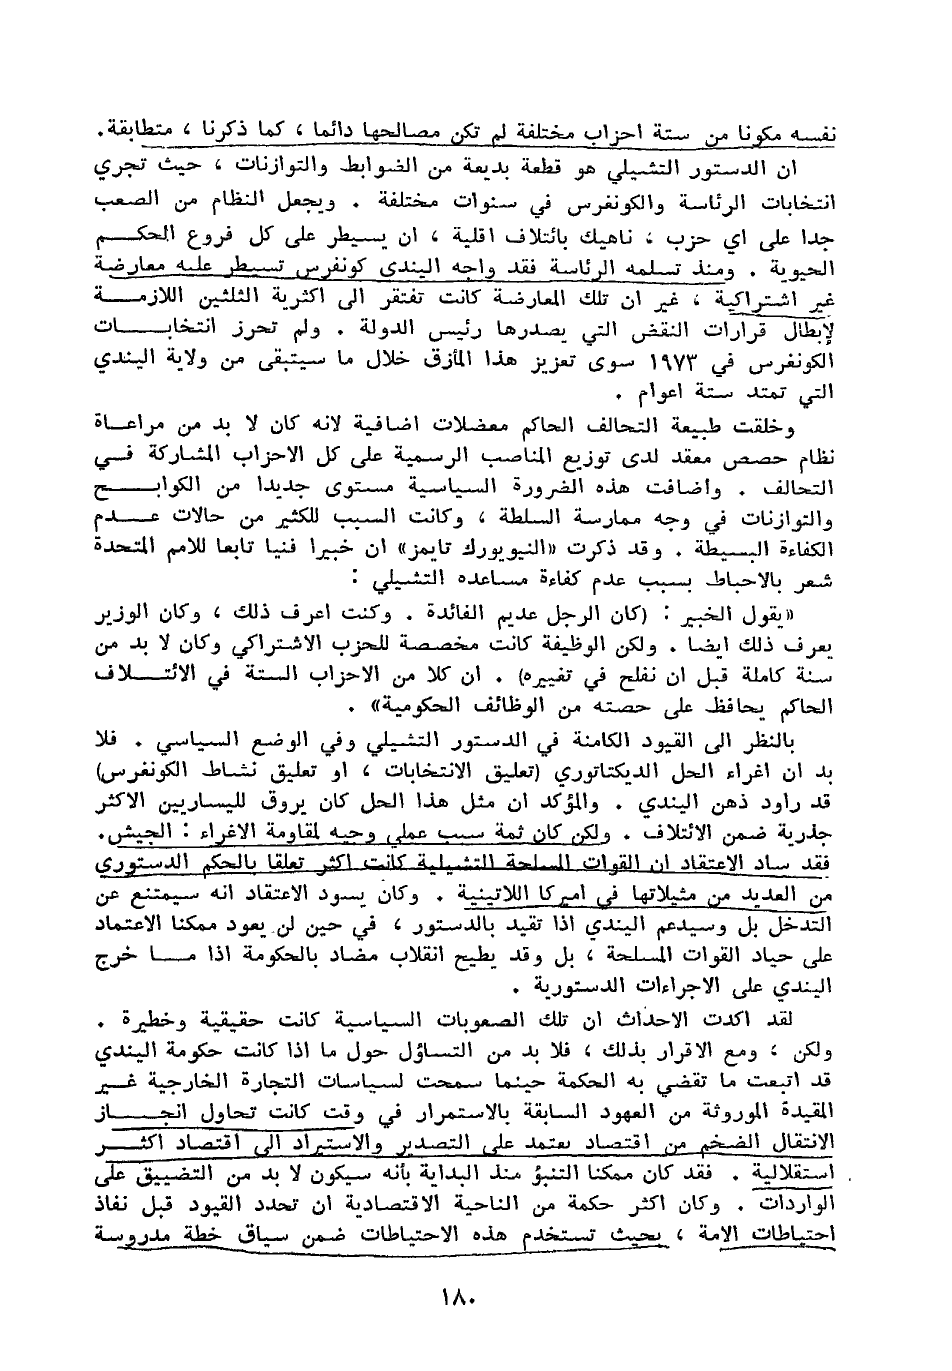 نفسه مكونا من ستة احزاب مختلفة لم تكن مصالحها دائما ، كما ذكرنا ، متطابقة.
ان الدستور التشيلي هو قطعة بديعة من الضوابط والتوازنات ، حيث تجري
انتخابات الرئاسة والكونغرس في سنوات مختلفة . ويجعل النظام من الصعب
جدا على اي حزب ، ناهيك بائتلاف اقلية ، ان يسيطر على كل فروع الحكم
الحيوية . ومنذ تسلمه الرئاسة فقد واجه اليندي كونغرس تسيطر عليه معارضة
غير اشتراكية ، غير ان تلك المعارضة كانت تفتقر الى اكثرية الثلثين اللازمة
لإبطال قرارات النقض التي يصدرها رئيس الدولة . ولم تحرز انتخابات
الكونغرس في ١٩٧٣ سوى تعزيز هذا المأزق خلال ما سيتبقى من ولاية اليندي
التي تمتد ستة اعوام .
وخلقت طبيعة التحالف الحاكم معضلات اضافية لانه كان لا بد من مراعاة
نظام حصص معقد لدى توزيع المناصب الرسمية على كل الاحزاب المشاركة في
التحالف . واضافت هذه الضرورة السياسية مستوى جديدا من الكوابح
والتوازنات في وجه ممارسة السلطة ، وكانت السبب للكثير من حالات عدم
الكفاءة البسيطة . وقد ذكرت «النيويورك تايمز» ان خبيرا فنيا تابعا للامم المتحدة
شعر بالاحباط بسبب عدم كفاءة مساعده التشيلي :
«يقول الخبير : (كان الرجل عديم الفائدة . وكنت اعرف ذلك ، وكان الوزير
يعرف ذلك ايضا . ولكن الوظيفة كانت مخصصة للحزب الاشتراكي وكان لا بد من
سنة كاملة قبل ان نفلح في تغييره) . ان كلا من الاحزاب الستة في الائتلاف
الحاكم يحافظ على حصته من الوظائف الحكومية» .
بالنظر الى القيود الكامنة في الدستور التشيلي وفي الوضع السياسي . فلا
بد ان اغراء الحل الديكتاتوري (تعليق الانتخابات ، او تعليق نشاط الكونغرس)
قد راود ذهن اليندي . والمؤكد ان مثل هذا الحل كان يروق لليساريين الاكثر
جذرية ضمن الائتلاف . ولكن كان ثمة سبب عملي وجيه لمقاومة الاغراء : الجيش.
فقد ساد الاعتقاد ان القوات المسلحة التشيلية كانت اكثر تعلقا بالحكم الدستوري
من العديد من مثيلاتها في اميركا اللاتينية . وكان يسود الاعتقاد انه سيمتنع عن
التدخل بل وسيدعم اليندي اذا تقيد بالدستور ، في حين لن يعود ممكنا الاعتماد
على حياد القوات المسلحة ، بل وقد يطيح انقلاب مضاد بالحكومة اذا ما خرج
اليندي على الاجراءات الدستورية .
لقد اكدت الاحداث ان تلك الصعوبات السياسية كانت حقيقية وخطيرة .
ولكن ، ومع الاقرار بذلك ، فلا بد من التساؤل حول ما اذا كانت حكومة اليندي
قد اتبعت ما تقضي به الحكمة حينما سمحت لسياسات التجارة الخارجية غير
المقيدة الموروثة من العهود السابقة بالاستمرار في وقت كانت تحاول انجاز
الانتقال الضخم من اقتصاد يعتمد على التصدير والاستيراد الى اقتصاد اكثر
استقلالية . فقد كان ممكنا التنبؤ منذ البداية بأنه سيكون لا بد من التضييق على
الواردات . وكان اكثر حكمة من الناحية الاقتصادية ان تحدد القيود قبل نفاذ
احتياطات الامة ، بحيث تستخدم هذه الاحتياطات ضمن سياق خطة مدروسة
١٨٠